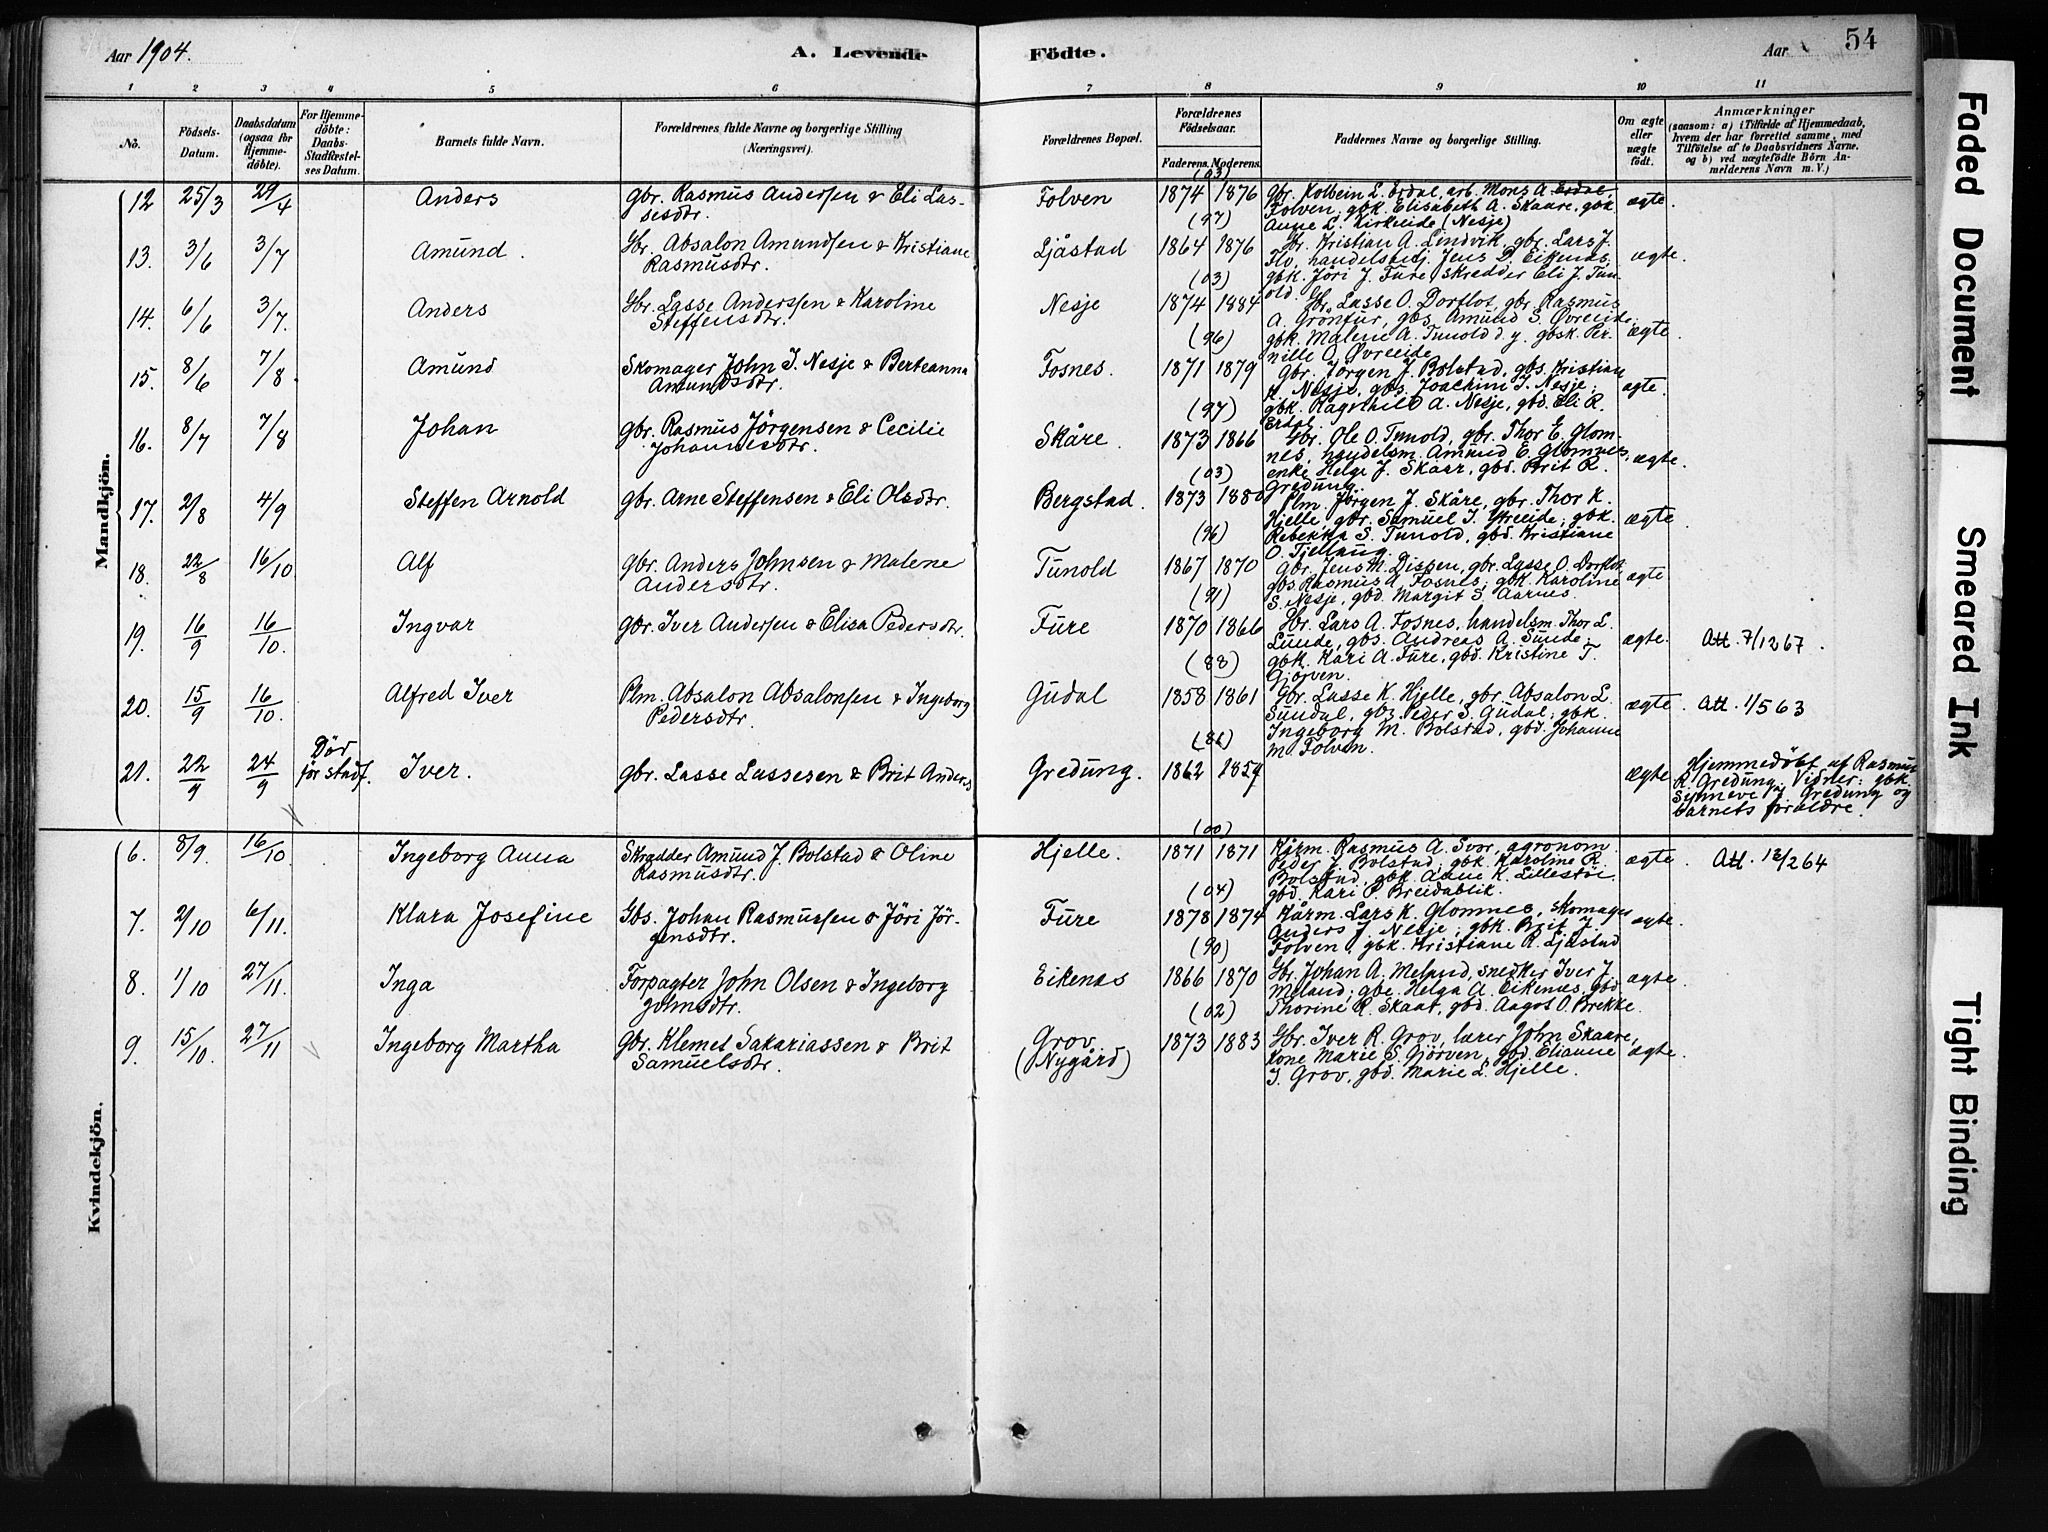 Aar 1904.
A. Levende Födte.
Aar
54
1 2 3 4 5 6 7 8 9 10 11
No.
Födsels-Datum.
Daabsdatum (ogsaa for Hjemme-döbte).
For Hjemme-döbte: Daabs-Stadfæstel-ses Datum.
Barnets fulde Navn.
Forældrenes fulde Navne og borgerlige Stilling (Næringsvei).
Forældrenes Bopæl.
Forældrenes Födselsaar.
Faderens. Moderens.
Faddernes Navne og borgerlige Stilling.
Om ægte eller uægte födt.
Anmærkninger
(saasom: a) i Tilfælde af Hjemmedaab, hvem der har forrettet samme, med Tilföielse af to Daabsvidners Navne. og b) ved uægtefödte Börn An-melderens Navn m. V.)
Mandkjön.
(03)
12 25/3 24/4 Anders gbr. Rasmus Andersen & Eli Las-
sesdtr.
Folven 1874 1876 gbr. Kolbein L. Erdal, arb. Mons A. Erdal,
Folven, gbk. Elisabeth A. Skaare, gbk.
Anne L. Kirkeide (Nesje)
ægte.
(97)
13. 3/6 3/7 Amund. Gbr. Absalon Amundsen & Kristiane
Rasmusdtr.
Ljåstad 1864 1876 Gbr. Kristian A. Lindvik, gbr. Lars J.
Flo, handelsbetj. Jens D. Eikenæs,
gbk. Jöri J. Fure, skredder Eli J. Tun-
old.
ægte.
(03)
14. 6/6 3/7. Anders Gbr. Lasse Anderssen & Karoline
Steffensdtr.
Nesje 1874 1884 Gbr. Lasse O. Dorflot, gbr. Rasmus
A. Grönfur, gbs. Amund S. Øvreeide;
gbk. Malene A. Tunold d.y. gbsk. Per-
nille O. Øvreeide
ægte.
(96)
15. 8/6 7/8. Amund Skomager John J. Nesje & Berteanna
Amundsdtr.
Fosnes. 1871 1879 Gbr. Jörgen J. Bolstad, gbs. Kristian
K. Nesje, gbs. Joachim J. Nesje;
gbk. Ragnhild A. Nesje, gbd. Eli R.
Erdal.
ægte.
(97)
16. 8/7 7/8 Johan gbr. Rasmus Jörgensen & Cecilie
Johannesdtr.
Skåre. 1873 1866 Gbr. Ole O. Tunold, gbr. Thor E. Glom-
nes, handelsm. Amund E. Glomnes,
enke Helge J. Skaar, gbd. Brit R.
Gredung.
ægte.
(03)
17. 2/8 4/9 Steffen Arnold gbr. Arne Steffensen & Eli Olsdtr. Bergstad. 1873 1880 Plm. Jörgen J. Skåre, gbr. Thor K.
Hjelle, gbr. Samuel J. Øvreeide; gbk.
Rebekka S. Tunold, gbd. Kristiane
O. Tjellaug.
ægte
(96)
18. 22/8 16/10 Alf gbr. Anders Johnsen & Malene
Andersdtr.
Tunold 1867 1870 Gbr. Jens M. Dissen, gbr. Lasse O. Dorflot
gbs Rasmus A. Fosnes; gbk. Karoline
S. Nesje, gbd. Margit S. Aarnes.
ægte
(91)
19. 16/9 16/10. Ingvar gbr. Iver Andersen & Elisa Pedersdtr. Fure 1870 1866 Gbr. Lars A. Fosnes, handelsm. Thor L.
Lunde, gbs. Andreas A. Sunde;
gbk. Kari A. Fure, gbd. Kristine T.
Gjörven.
ægte. Att. 7/1267.
(88)
20. 15/9 16/10. Alfred Iver Plm. Absalon Absalonsen & Ingeborg
Pedersdtr.
Gudal 1858 1861 Gbr. Lasse K. Hjelle, gbr. Absalon L.
Sundal, gbs. Peder S. Gudal; gbk.
Ingeborg M. Bolstad, gbd. Johanne
M. Folven.
ægte. Att. 1/563
(86)
21. 22/9 24/9 Dör
før stadf.
Iver. gbr. Lasse Lassesen & Brit Anders Gredung. 1862 1859 ægte Hjemmedöbt af Rasmus
R. Gredung. Vidner: gbk.
Synneve J. Gredung og
barnets forældre.
Kvindekjön.
(00)
6. 8/9. 16/10 Ingeborg Anna Skredder Amund J. Bolstad & Oline
Rasmusdtr.
Hjelle. 1871 1871 Kårm. Rasmus A. Svor, agronom
Peder J. Bolstad; gbk. Karoline R.
Bolstad, gbk. Anne K. Lillestöl.
gbd. Kari P. Breidablik.
ægte. Att. 12/264
(04)
7. 2/10 6/11. Klara Josefine Gbs. Johan Rasmussen & Jöri Jör-
gensdtr.
Fure 1878 1874 Kårm. Lars K. Glomnes, skomager
Anders J. Nesje; gbk. Brit J.
Folven, gbk. Kristiane R. Ljåstad
ægte.
(90)
8. 1/10 27/11. Inga Forpagter John Olsen & Ingeborg
Johnsdtr.
Eikenæs 1866 1870 Gbr. Johan A. Meland, snedker Iver J.
Meland; gbk. Helga A. Eikenæs, gbd.
Thorine R. Skaar, gbd. Aagot O. Brekke.
ægte.
(02)
9. 15/10. 27/11 Ingeborg Martha Gbr. Klemet Sakariassen & Brit
Samuelsdtr.
Grov
(Nygård)
1873 1883 Gbr. Iver R. Grov, lærer John Skaare,
kone Marie S. Gjörven, gbd. Elianne
J. Grov, gbd. Marie L. Hjelle.
ægte.
Faded Document
Smeared Ink
Tight Binding